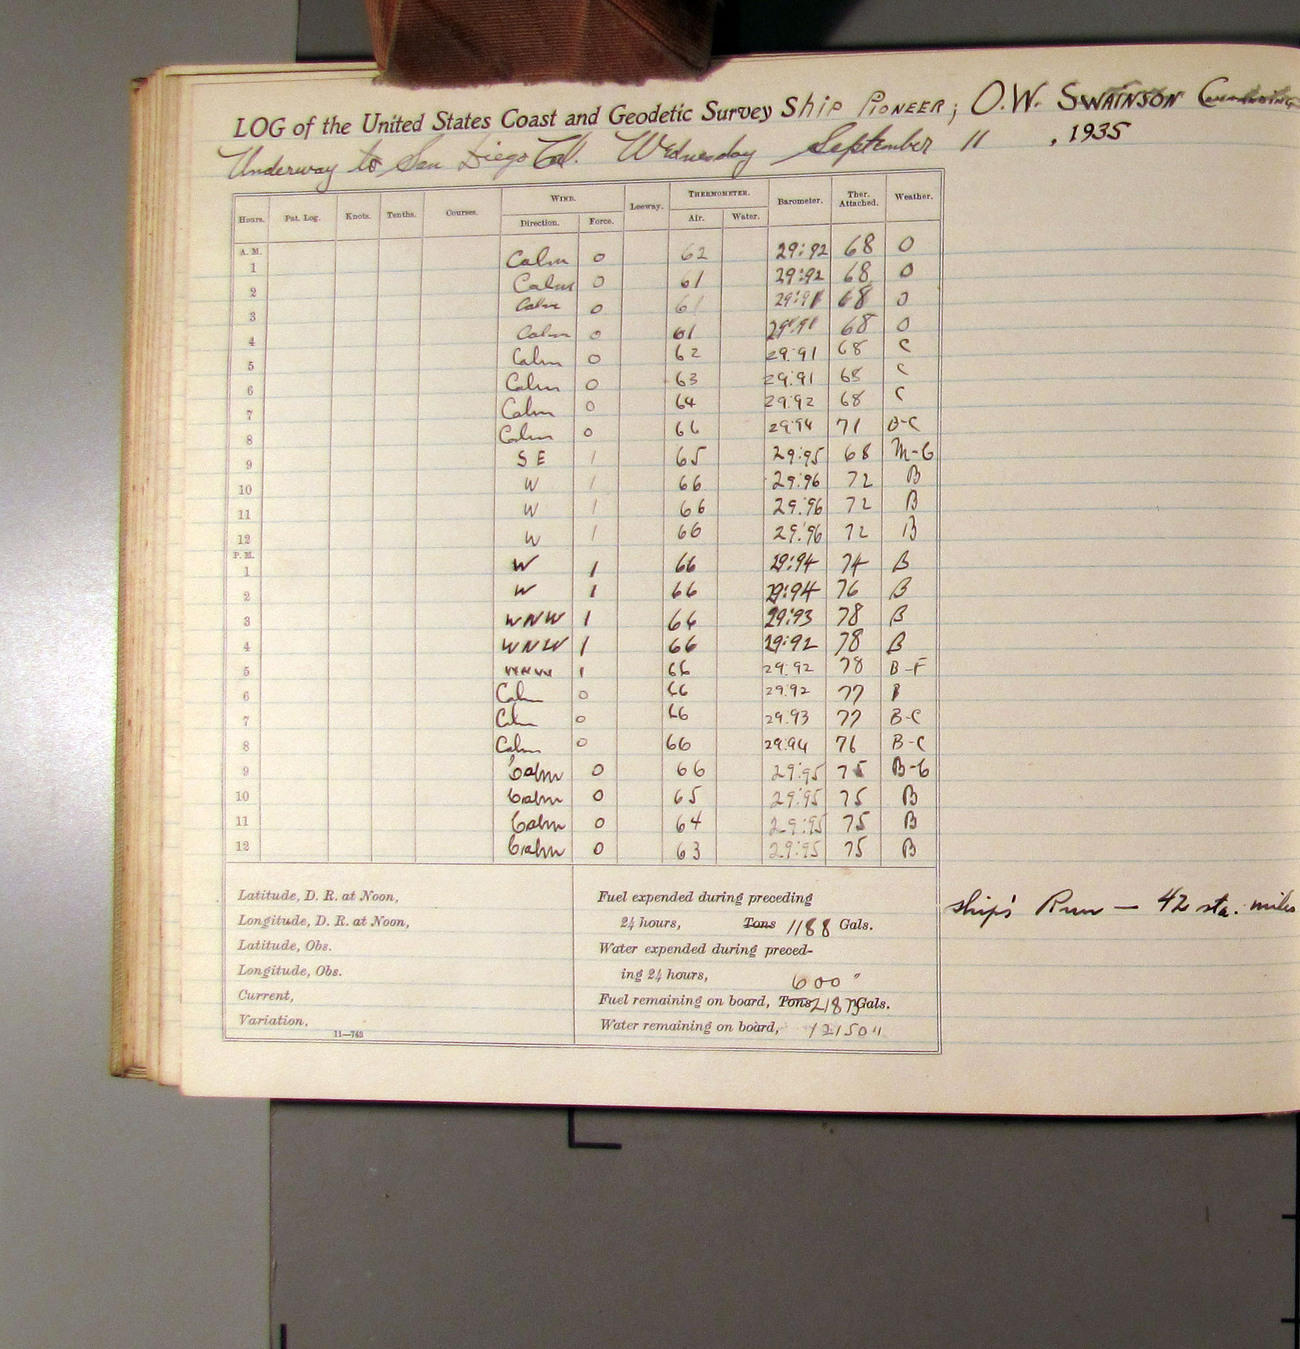 LOG of the United States Coast and Geodetic Survey Ship PIONEER, O.W. SWAINSON
Underway to San Diego Cal. Wednesday September 11, 1935
WIND. THERMOMETER.
Hours. Pat. Log. Knots. Tenths. Courses. Direction. Force. Leeway. Air. Water. Barometer. Ther. Attached. Weather.
A. M.
1 Calm 0 62 29:92 68 O
2 Calm 0 61 29:92 68 O
3 Calm 0 61 29:91 68 O
4 Calm 0 61 29:91 68 O
5 Calm 0 62 29:91 68 C
6 Calm 0 63 29:91 68 C
7 Calm 0 64 29:92 68 C
8 Calm 0 66 29:94 71 O-C
9 SE 1 65 29:95 68 M-C
10 W 1 66 29:96 72 B
11 W 1 66 29:96 72 B
12 W 1 66 29:96 72 B
P. M.
1 W 1 66 29:94 74 B
2 W 1 66 29:94 76 B
3 WNW 1 66 29:93 78 B
4 WNW 1 66 29:92 78 B
5 WNW 1 66 29:92 78 B-F
6 Calm 0 66 29:92 77 B
7 Calm 0 66 29:93 77 B-C
8 Calm 0 66 29:94 76 B-C
9 Calm 0 66 29:95 75 B-C
10 Calm 0 65 29:95 75 B
11 Calm 0 64 29:95 75 B
12 Calm 0 63 29:95 75 B
Latitude, D. R. at Noon,
Longitude, D. R. at Noon,
Latitude, Obs.
Longitude, Obs.
Current,
Variation,
11—743
Fuel expended during preceding
24 hours, Tons 1188 Gals.
Water expended during preced-
ing 24 hours, 600 "
Fuel remaining on board, Tons Gals.
Water remaining on board, 12150 "
Ship's Run — 42 sta. miles